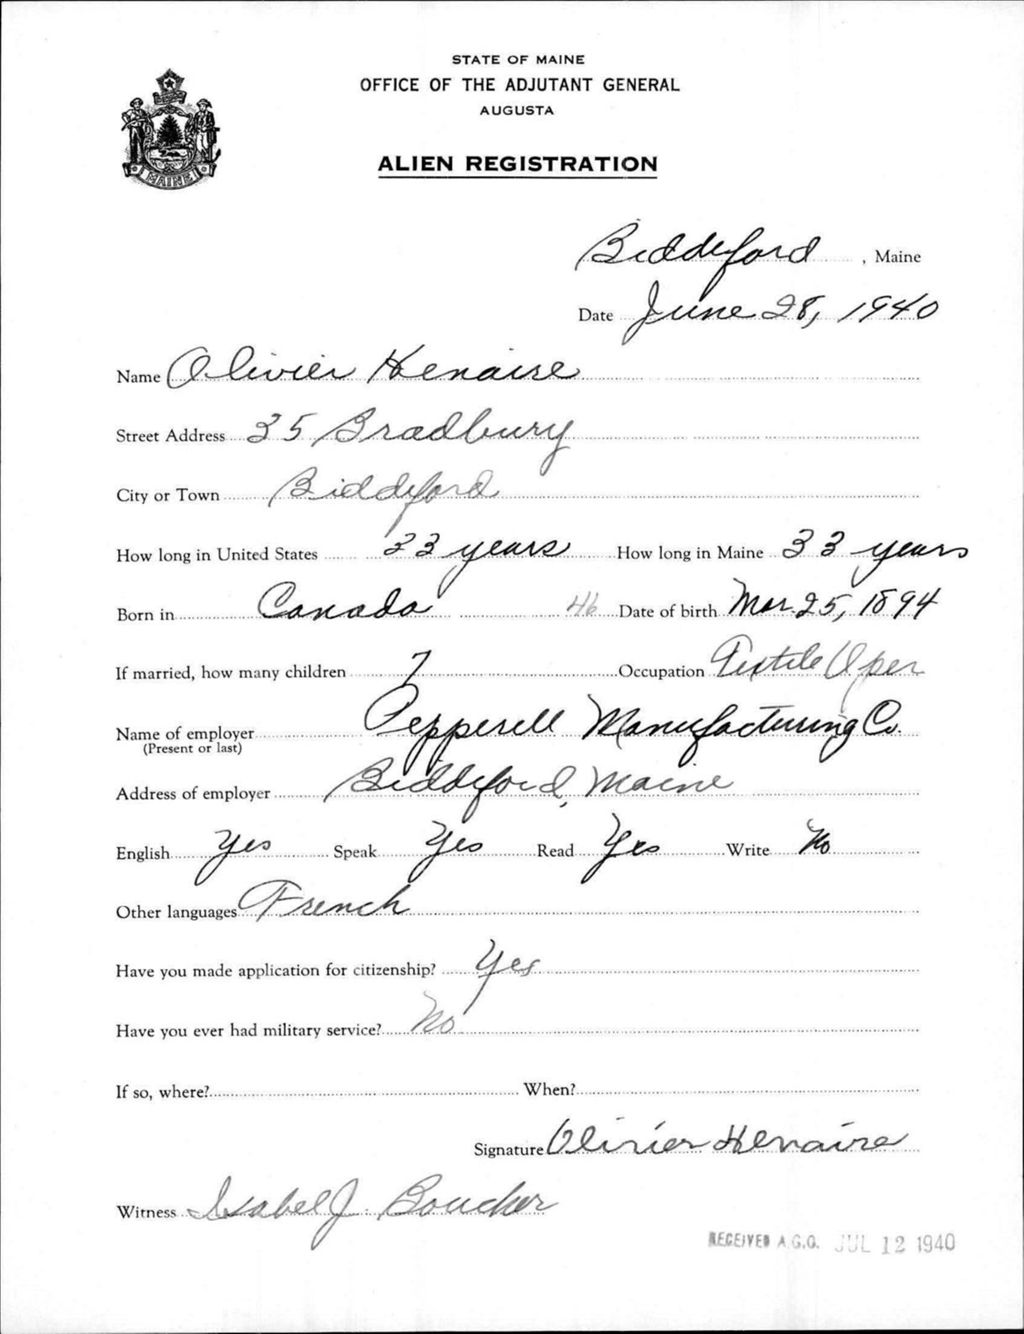 STATE OF MAINE
OFFICE OF THE ADJUTANT GENERAL
AUGUSTA
ALIEN REGISTRATION
MAINE
Biddeford, Maine
Date June 28, 1940
Name Olivier Henaire
Street Address 35 Bradbury
City or Town Biddeford
How long in United States 33 years How long in Maine 33 years
Born in Canada 46 Date of birth Mar. 25, 1894
If married, how many children 7 Occupation Textile Oper
Name of employer Pepperell Manufacturing Co.
(Present or last)
Address of employer Biddeford, Maine
English Yes Speak Yes Read Yes Write No
Other languages French
Have you made application for citizenship? Yes
Have you ever had military service? No
If so, where? When?
Signature Olivier Henaire
Witness Isabel J. Boucher
RECEIVED A.G.O. JUL 12 1940